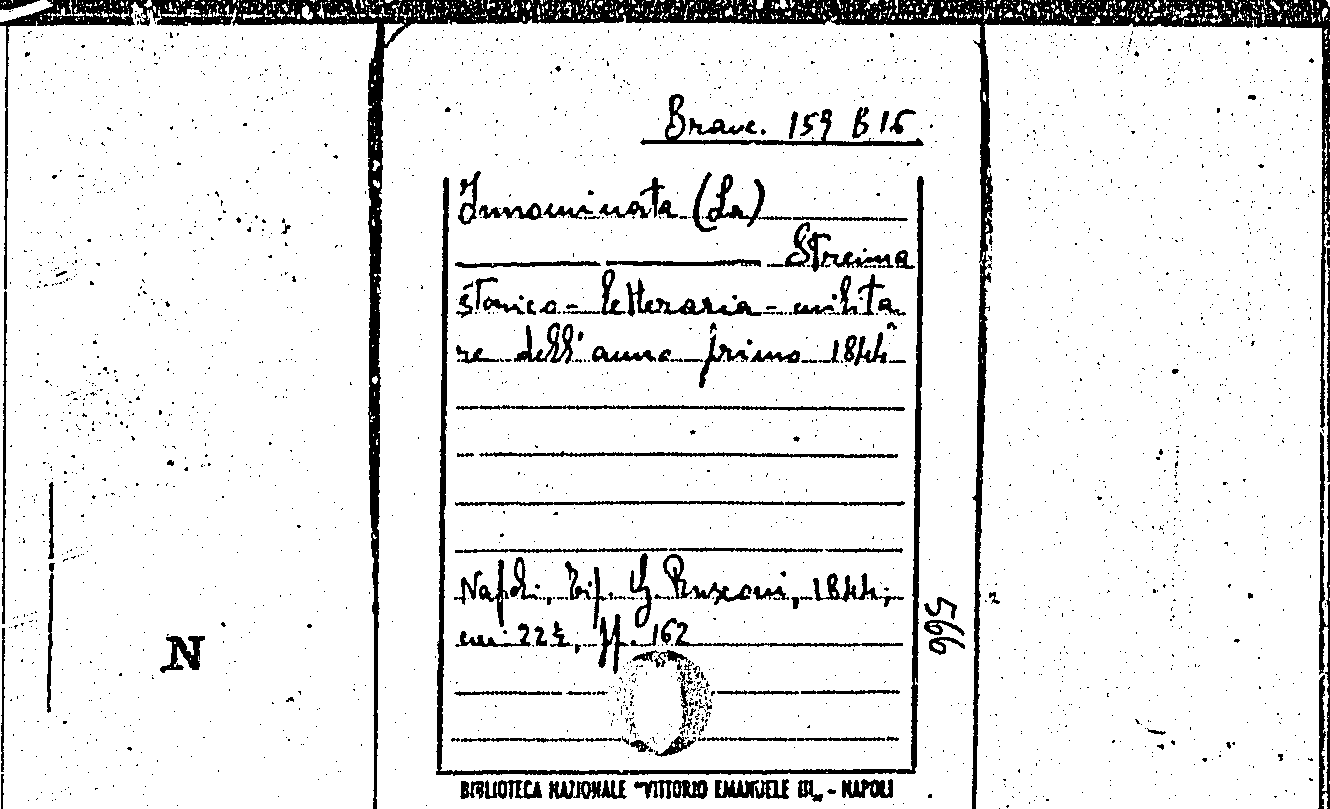 Branc. 159 B 15
Innominata (La)
Streima
storico-letteraria-milita
re dell'anno primo 1844
Napoli, Tip. G Rusconi, 1844;
cm 22½, pp. 162
566
N
BIBLIOTECA NAZIONALE "VITTORIO EMANUELE III„ - NAPOLI